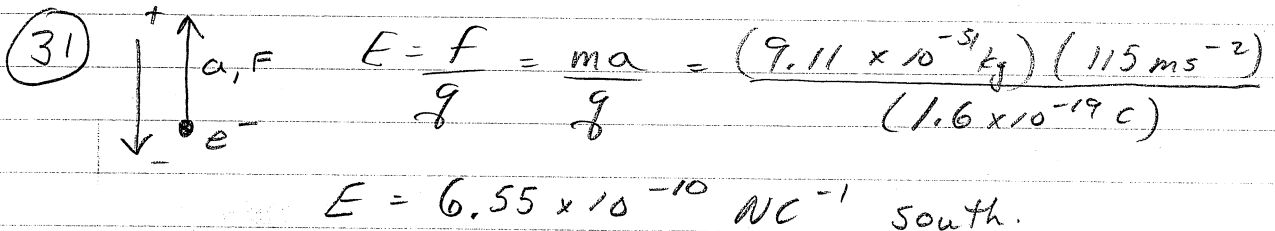 31 + a, F E = f/q = ma/q = (9.11 × 10⁻³¹ kg)(115 ms⁻²)/(1.6 × 10⁻¹⁹ C)
- e⁻
E = 6.55 × 10⁻¹⁰ NC⁻¹ south.